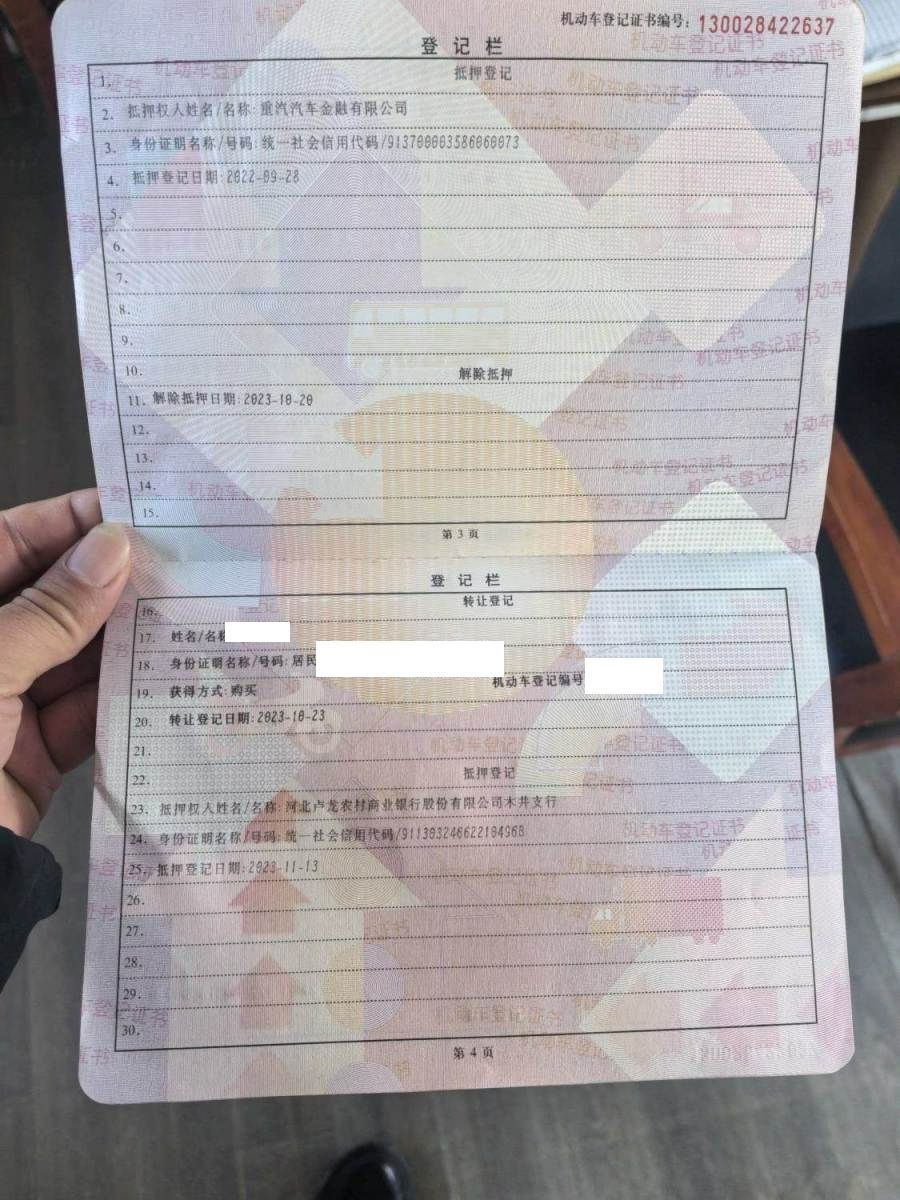 机动车登记证书编号：130028422637
登记栏
1. 抵押登记
2. 抵押权人姓名/名称：重汽汽车金融有限公司
3. 身份证明名称/号码：统一社会信用代码/913700003586060073
4. 抵押登记日期：2022-09-28
5.
6.
7.
8.
9.
10. 解除抵押
11. 解除抵押日期：2023-10-20
12.
13.
14.
15.
第 3 页
登记栏
16. 转让登记
17. 姓名/名称
18. 身份证明名称/号码：居民
19. 获得方式：购买 机动车登记编号
20. 转让登记日期：2023-10-23
21.
22. 抵押登记
23. 抵押权人姓名/名称：河北卢龙农村商业银行股份有限公司木井支行
24. 身份证明名称/号码：统一社会信用代码/911303246622104968
25. 抵押登记日期：2023-11-13
26.
27.
28.
29.
30.
第 4 页